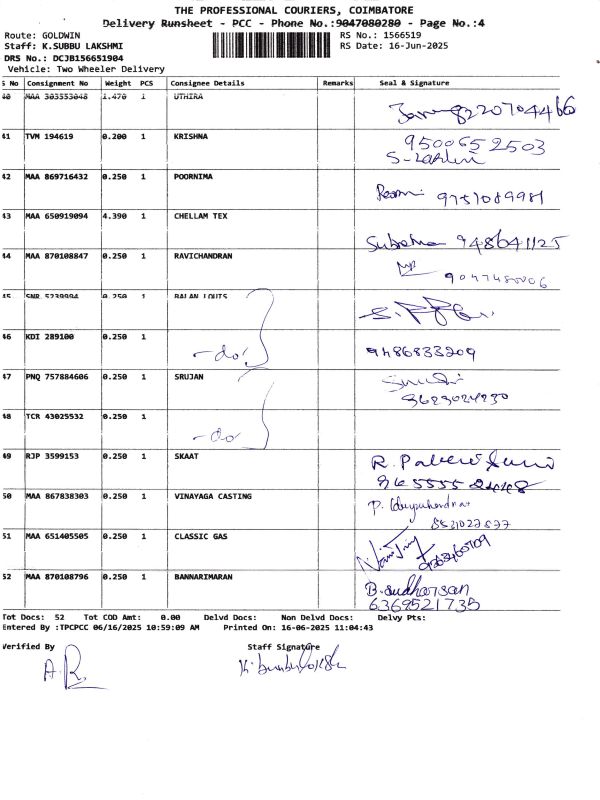 THE PROFESSIONAL COURIERS, COIMBATORE
Delivery Runsheet - PCC - Phone No.:9047080280 - Page No.:4
Route: GOLDWIN RS No.: 1566519
Staff: K.SUBBU LAKSHMI RS Date: 16-Jun-2025
DRS No.: DCJB156651904
Vehicle: Two Wheeler Delivery
S No Consignment No Weight PCS Consignee Details Remarks Seal & Signature
40 MAA 303553048 1.470 1 UTHIRA 8220704466
41 TVM 194619 0.200 1 KRISHNA 9500652503
42 MAA 869716432 0.250 1 POORNIMA 9751089981
43 MAA 650919094 4.390 1 CHELLAM TEX 9486411125
44 MAA 870108847 0.250 1 RAVICHANDRAN
45 SNR 5239994 0.250 1 BALAN LOUTS
46 KDI 289100 0.250 1 -do- 9486833209
47 PNQ 757884606 0.250 1 SRUJAN
48 TCR 43025532 0.250 1 -do-
49 RJP 3599153 0.250 1 SKAAT
50 MAA 867838303 0.250 1 VINAYAGA CASTING
51 MAA 651405505 0.250 1 CLASSIC GAS
52 MAA 870108796 0.250 1 BANNARIMARAN B.Sudharsan
6369521735
Tot Docs: 52 Tot COD Amt: 0.00 Delvd Docs: Non Delvd Docs: Delvy Pts:
Entered By :TPCPCC 06/16/2025 10:59:09 AM Printed On: 16-06-2025 11:04:43
Verified By Staff Signature
A.R.